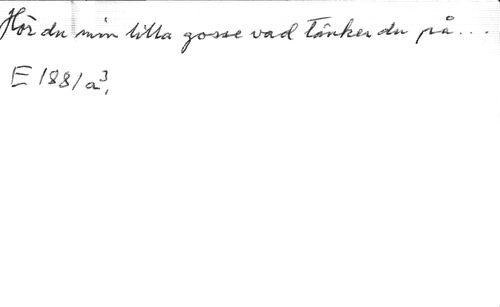 Hör du min lilla gosse vad tänker du på...
E 188/a³.